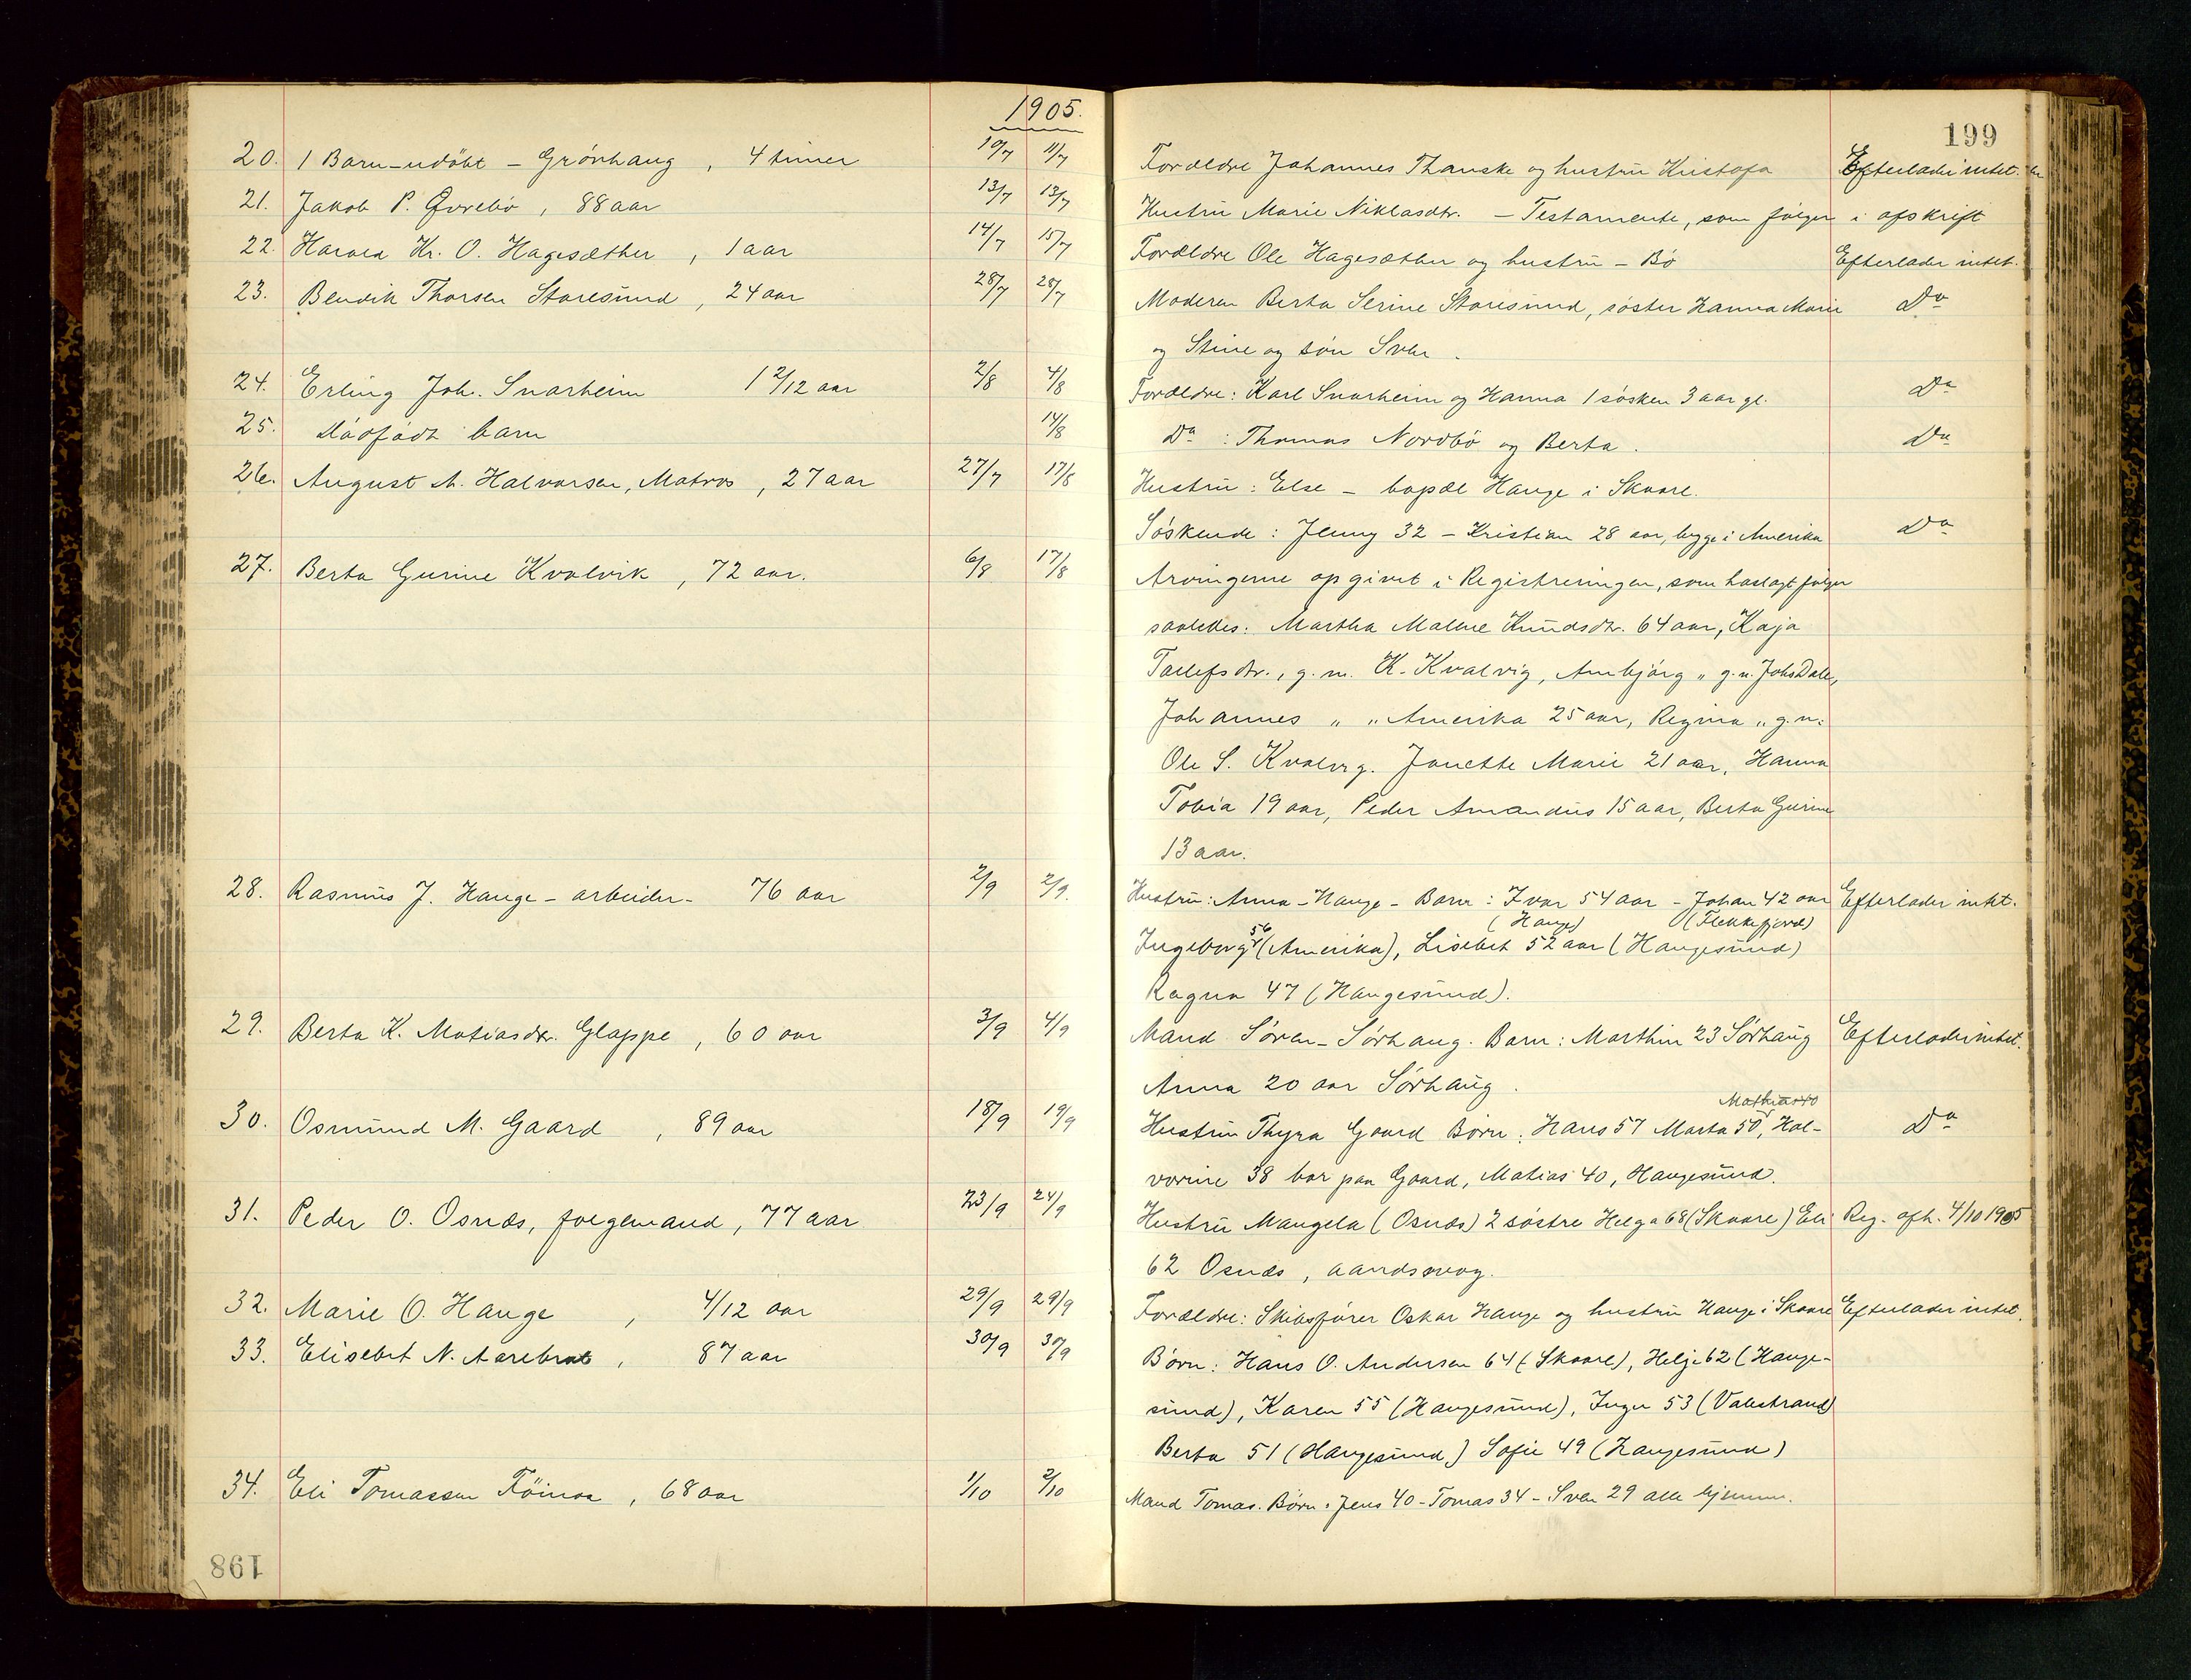 1905.
199
20. 1 Barn - udöbt - Grönhaug, 4 timer 10/7 11/7 Forældre Johannes Thauske og hustru Kristofa Efterlader intet.
21. Jakob P. Øvrebö, 88 aar 13/7 13/7 Hustru Marie Niklasdtr. - Testamente, som følger i afskrift
22. Harald Kr. O. Hagesæther, 1 aar 14/7 15/7 Forældre Ole Hagesæther og hustru - Bö Efterlader intet.
23. Bendik Thorsen Storesund, 24 aar 28/7 28/7 Moderen Berta Serine Storesund, söster Hanna Marie Do
og Stine og sön Sven.
24. Erling Joh. Snarheim 1 2/12 aar 2/8 4/8 Forældre: Karl Snarheim og Hanna 1 sösken 3 aar gl. Do
25. Dödfödt barn 14/8 Do : Thomas Nordbö og Berta. Do
26. August M. Halvorsen, Matros, 27 aar 27/7 17/8 Hustru: Else - bopæl Hauge i Skaare.
Söskende: Jenny 32 - Kristian 28 aar, begge i Amerika Do
27. Berta Gurine Kvalvik, 72 aar. 6/8 17/8 Arvingerne opgivet i Registreringen, som hoslagt følger
saaledes: Martha Malene Knudsdtr. 64 aar, Kaja
Tollefsdtr., g. m. K. Kvalvig, Anbjörg " g. m. Johs Dale,
Johannes " " Amerika 25 aar, Regina " g. m.
Ole S. Kvalvig. Janette Marie 21 aar, Hanna
Tobia 19 aar, Peder Amandus 15 aar, Berta Gurine
13 aar.
28. Rasmus J. Hauge - arbeider - 76 aar 2/9 2/9. Hustru: Anna - Hauge - Barn: Ivar 54 aar - Johan 42 aar Efterlader intet.
(Hauge) (Flekkefjord)
Ingeborg 56 (Amerika), Lisebet 52 aar (Haugesund)
Ragna 47 (Haugesund).
29. Berta K. Matiasdtr. Glappe, 60 aar 3/9 4/9 Mand Sören - Sörhaug. Barn: Marthin 23 Sörhaug Efterlader intet.
Anna 20 aar Sörhaug.
Mathias 40
30. Osmund M. Gaard, 89 aar 18/9 19/9 Hustru Thyra Gaard Börn: Hans 57 Marta 50, Hal- Do
vorine 38 bor paa Gaard, Matias 40, Haugesund.
31. Peder O. Osnæs, folgemand, 77 aar 23/9 24/9 Hustru Mangela (Osnæs) 2 söstre Helga 68 (Skaare) Eli Reg. afh. 4/10 1905
62 Osnæs, aandssvag.
32. Marie O. Hauge, 4/12 aar 29/9 29/9 Forældre: Skibsförer Oskar Hauge og hustru Hauge i Skaare Efterlader intet.
33. Elisebet N. Aarebrot, 87 aar 30/9 30/9 Börn: Hans O. Andersen 64 (Skaare), Helje 62 (Hauge-
sund), Karen 55 (Haugesund), Inger 53 (Valestrand)
Berta 51 (Haugesund) Sofie 49 (Haugesund)
34. Eli Tomassen Föinaa, 68 aar 1/10 2/10 Mand Tomas. Börn: Jens 40 - Tomas 34 - Sven 29 alle hjemme.
198